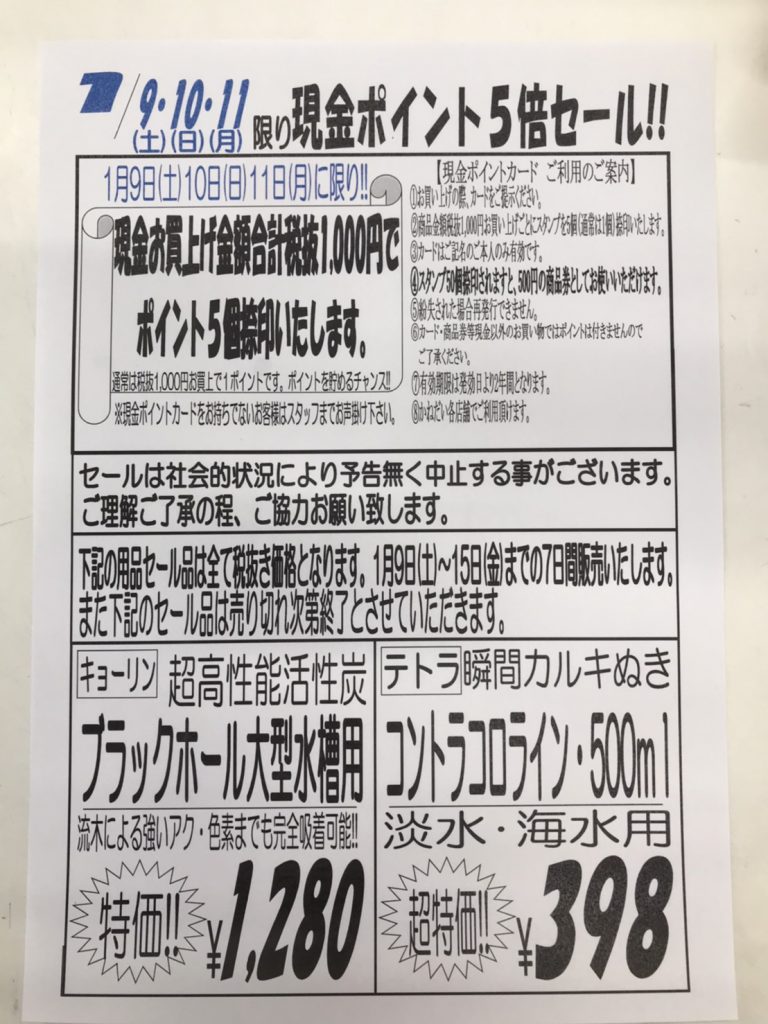 1/9・10・11
(土)(日)(月)限り現金ポイント5倍セール!!
1月9日(土)10日(日)11日(月)に限り!!
現金お買上げ金額合計税抜1,000円で
ポイント5個捺印いたします。
通常は税抜1,000円お買上で1ポイントです。ポイントを貯めるチャンス!!
※現金ポイントカードをお持ちでないお客様はスタッフまでお声掛け下さい。
【現金ポイントカード ご利用のご案内】
①お買い上げの際、カードをご提示ください。
②商品金額税抜1,000円お買上げごとにスタンプを5個(通常は1個)捺印いたします。
③カードはご記名のご本人のみ有効です。
④スタンプ50個捺印されますと、500円の商品券としてお使いいただけます。
⑤紛失された場合再発行できません。
⑥カード・商品券等現金以外のお買い物ではポイントは付きませんので
ご了承ください。
⑦有効期限は発効日より2年間となります。
⑧かねだい各店舗でご利用頂けます。
セールは社会的状況により予告無く中止する事がございます。
ご理解ご了承の程、ご協力お願い致します。
下記の用品セール品は全て税抜き価格となります。1月9日(土)~15日(金)までの7日間販売いたします。
また下記のセール品は売り切れ次第終了とさせていただきます。
キョーリン 超高性能活性炭
ブラックホール大型水槽用
流木による強いアク・色素までも完全吸着可能!!
特価!! ¥1,280
テトラ 瞬間カルキぬき
コントラコロライン・500ml
淡水・海水用
超特価!! ¥398